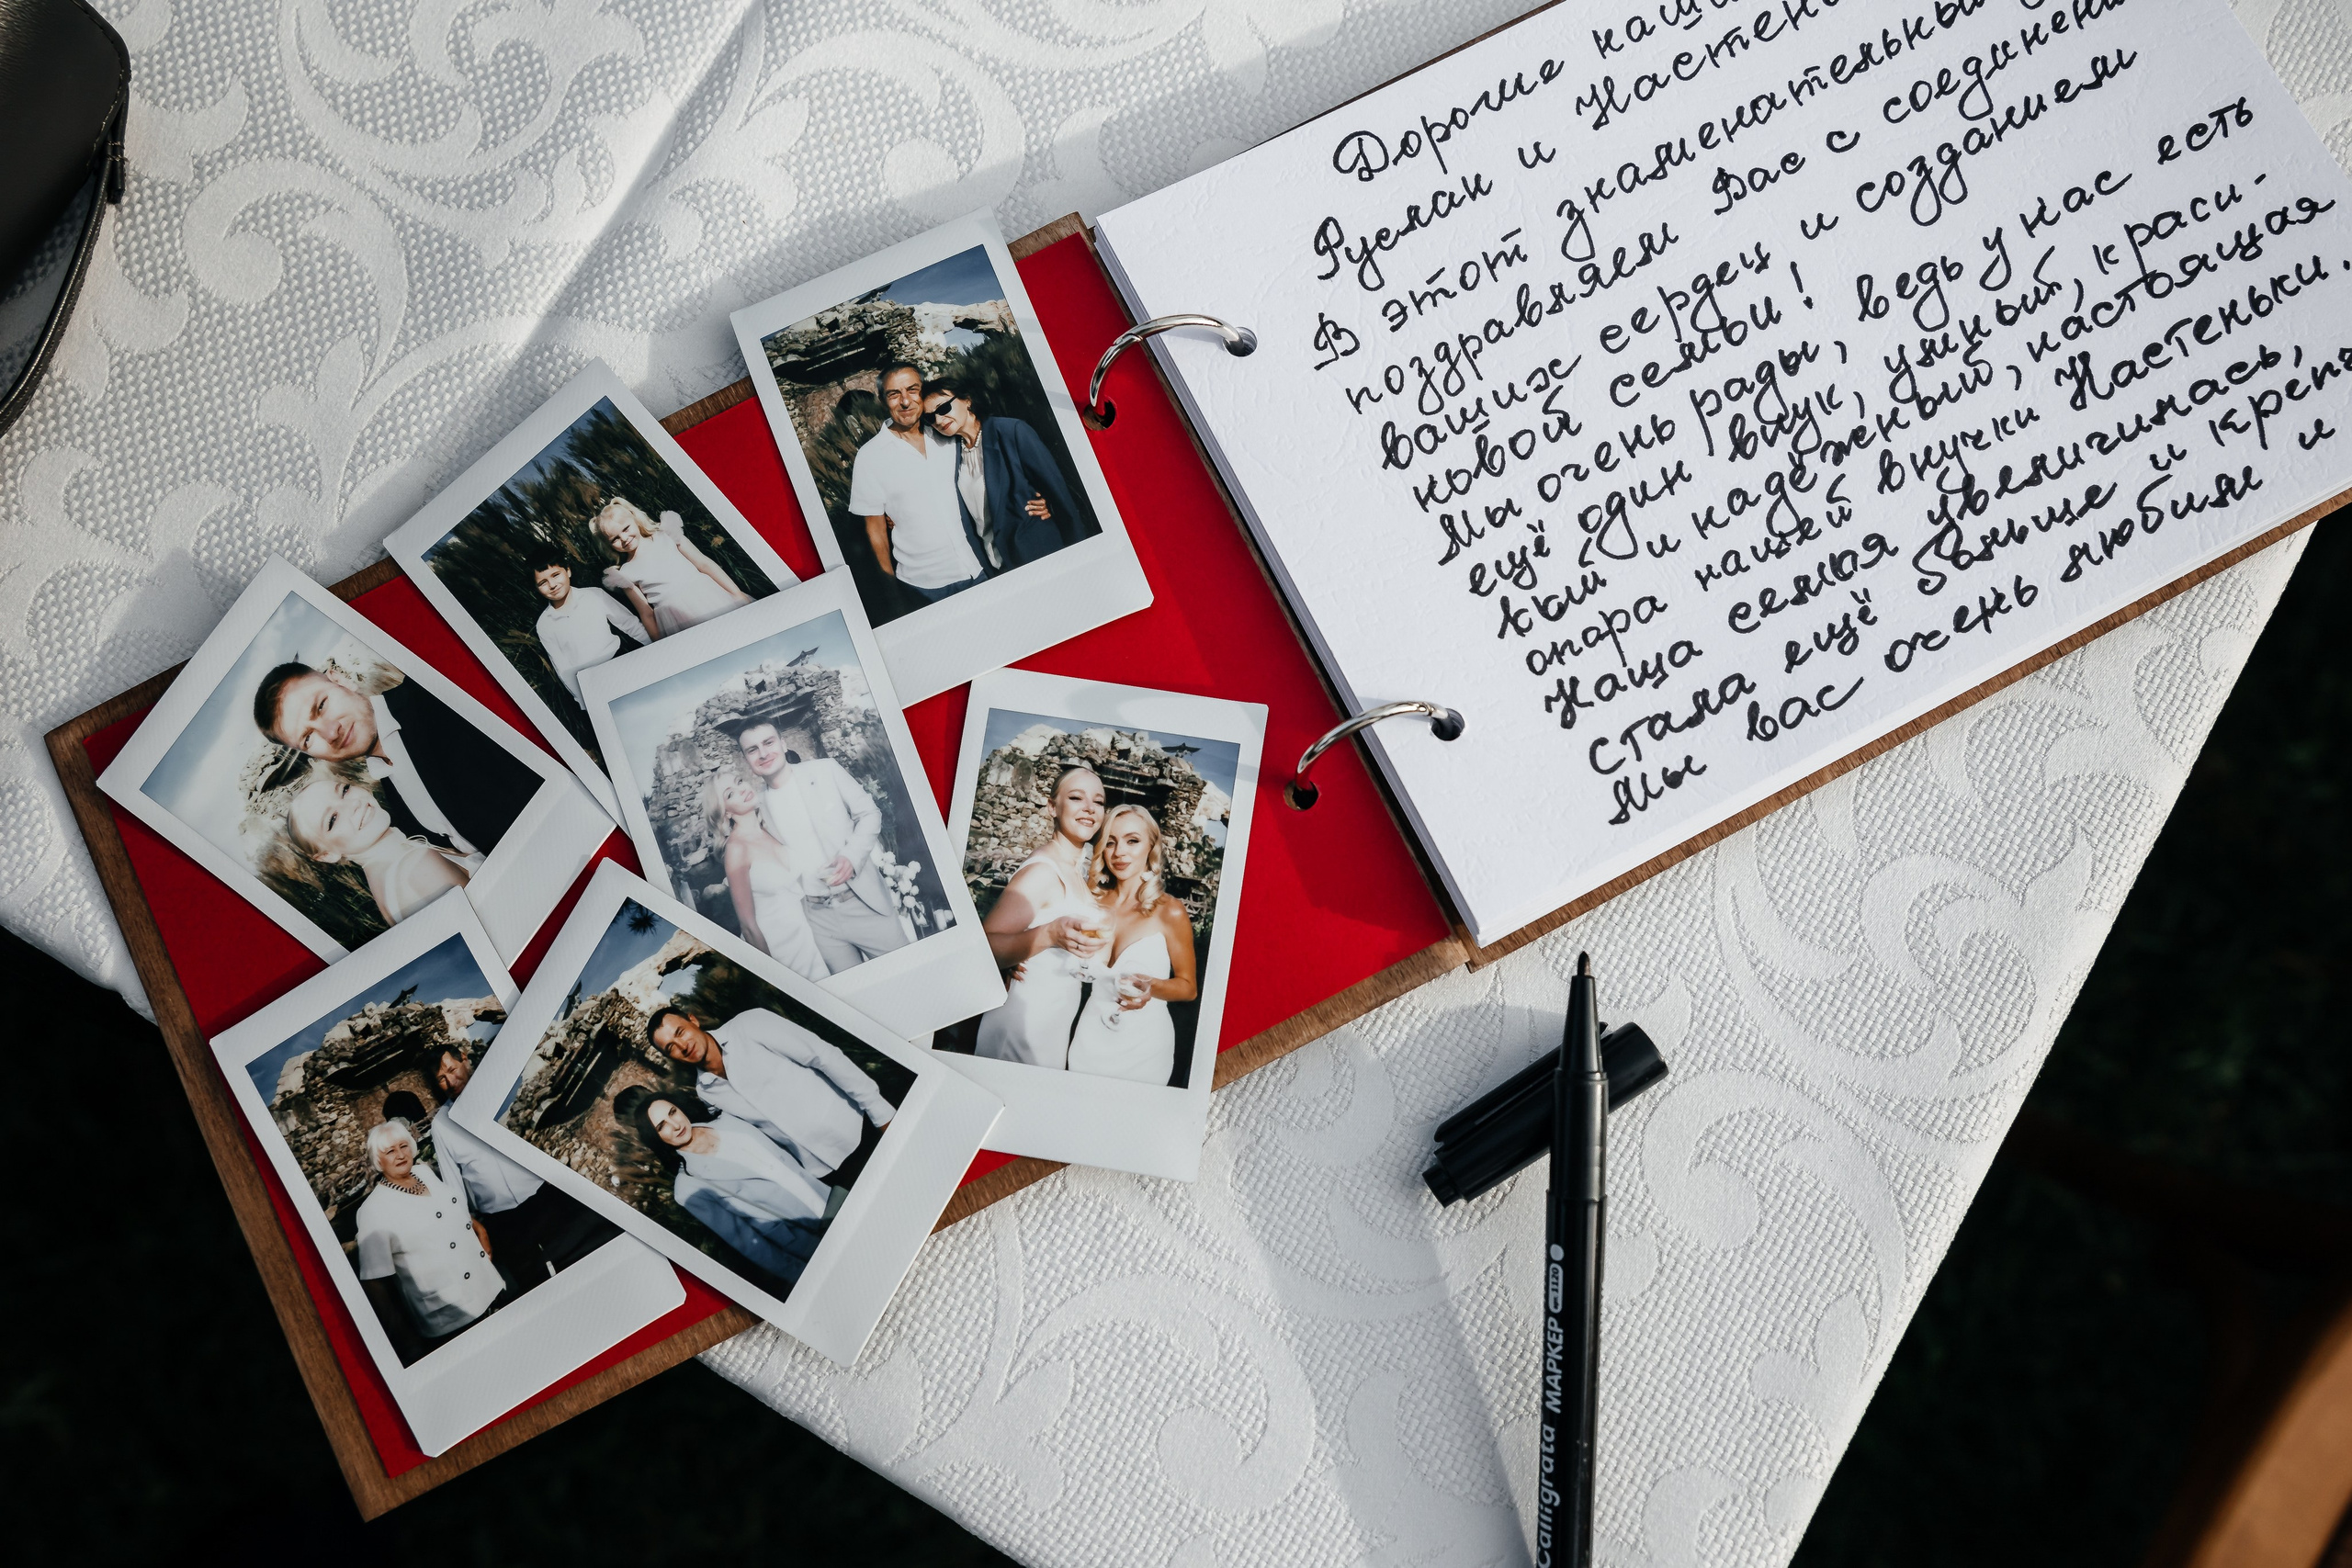 Дорогие наши
Руслан и Настень
В этот знаменательный
поздравляем Вас с соединени
ваших сердец и созданием
новой семьи!
Мы очень рады, ведь у нас есть
ещё один внук, умный, краси-
вый и надёжный, настоящая
опора нашей внучки Настеньки.
Наша семья увеличилась,
стала ещё больше и крепч
Мы вас очень любим и
Calligrata МАРКЕР 1120